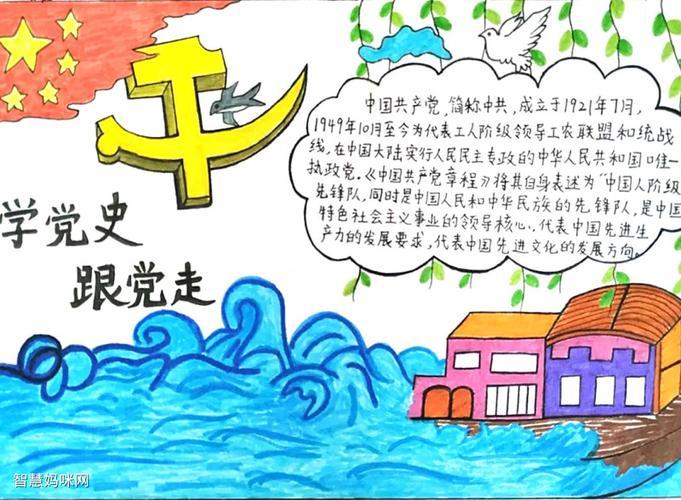 学党史
跟党走
中国共产党,简称中共,成立于1921年7月,
1949年10月至今为代表工人阶级领导工农联盟和统战
线,在中国大陆实行人民民主专政的中华人民共和国唯一
执政党。《中国共产党章程》将其自身表述为“中国人阶级
先锋队,同时是中国人民和中华民族的先锋队,是中国
特色社会主义事业的领导核心,代表中国先进生
产力的发展要求,代表中国先进文化的发展方向。
智慧妈咪网